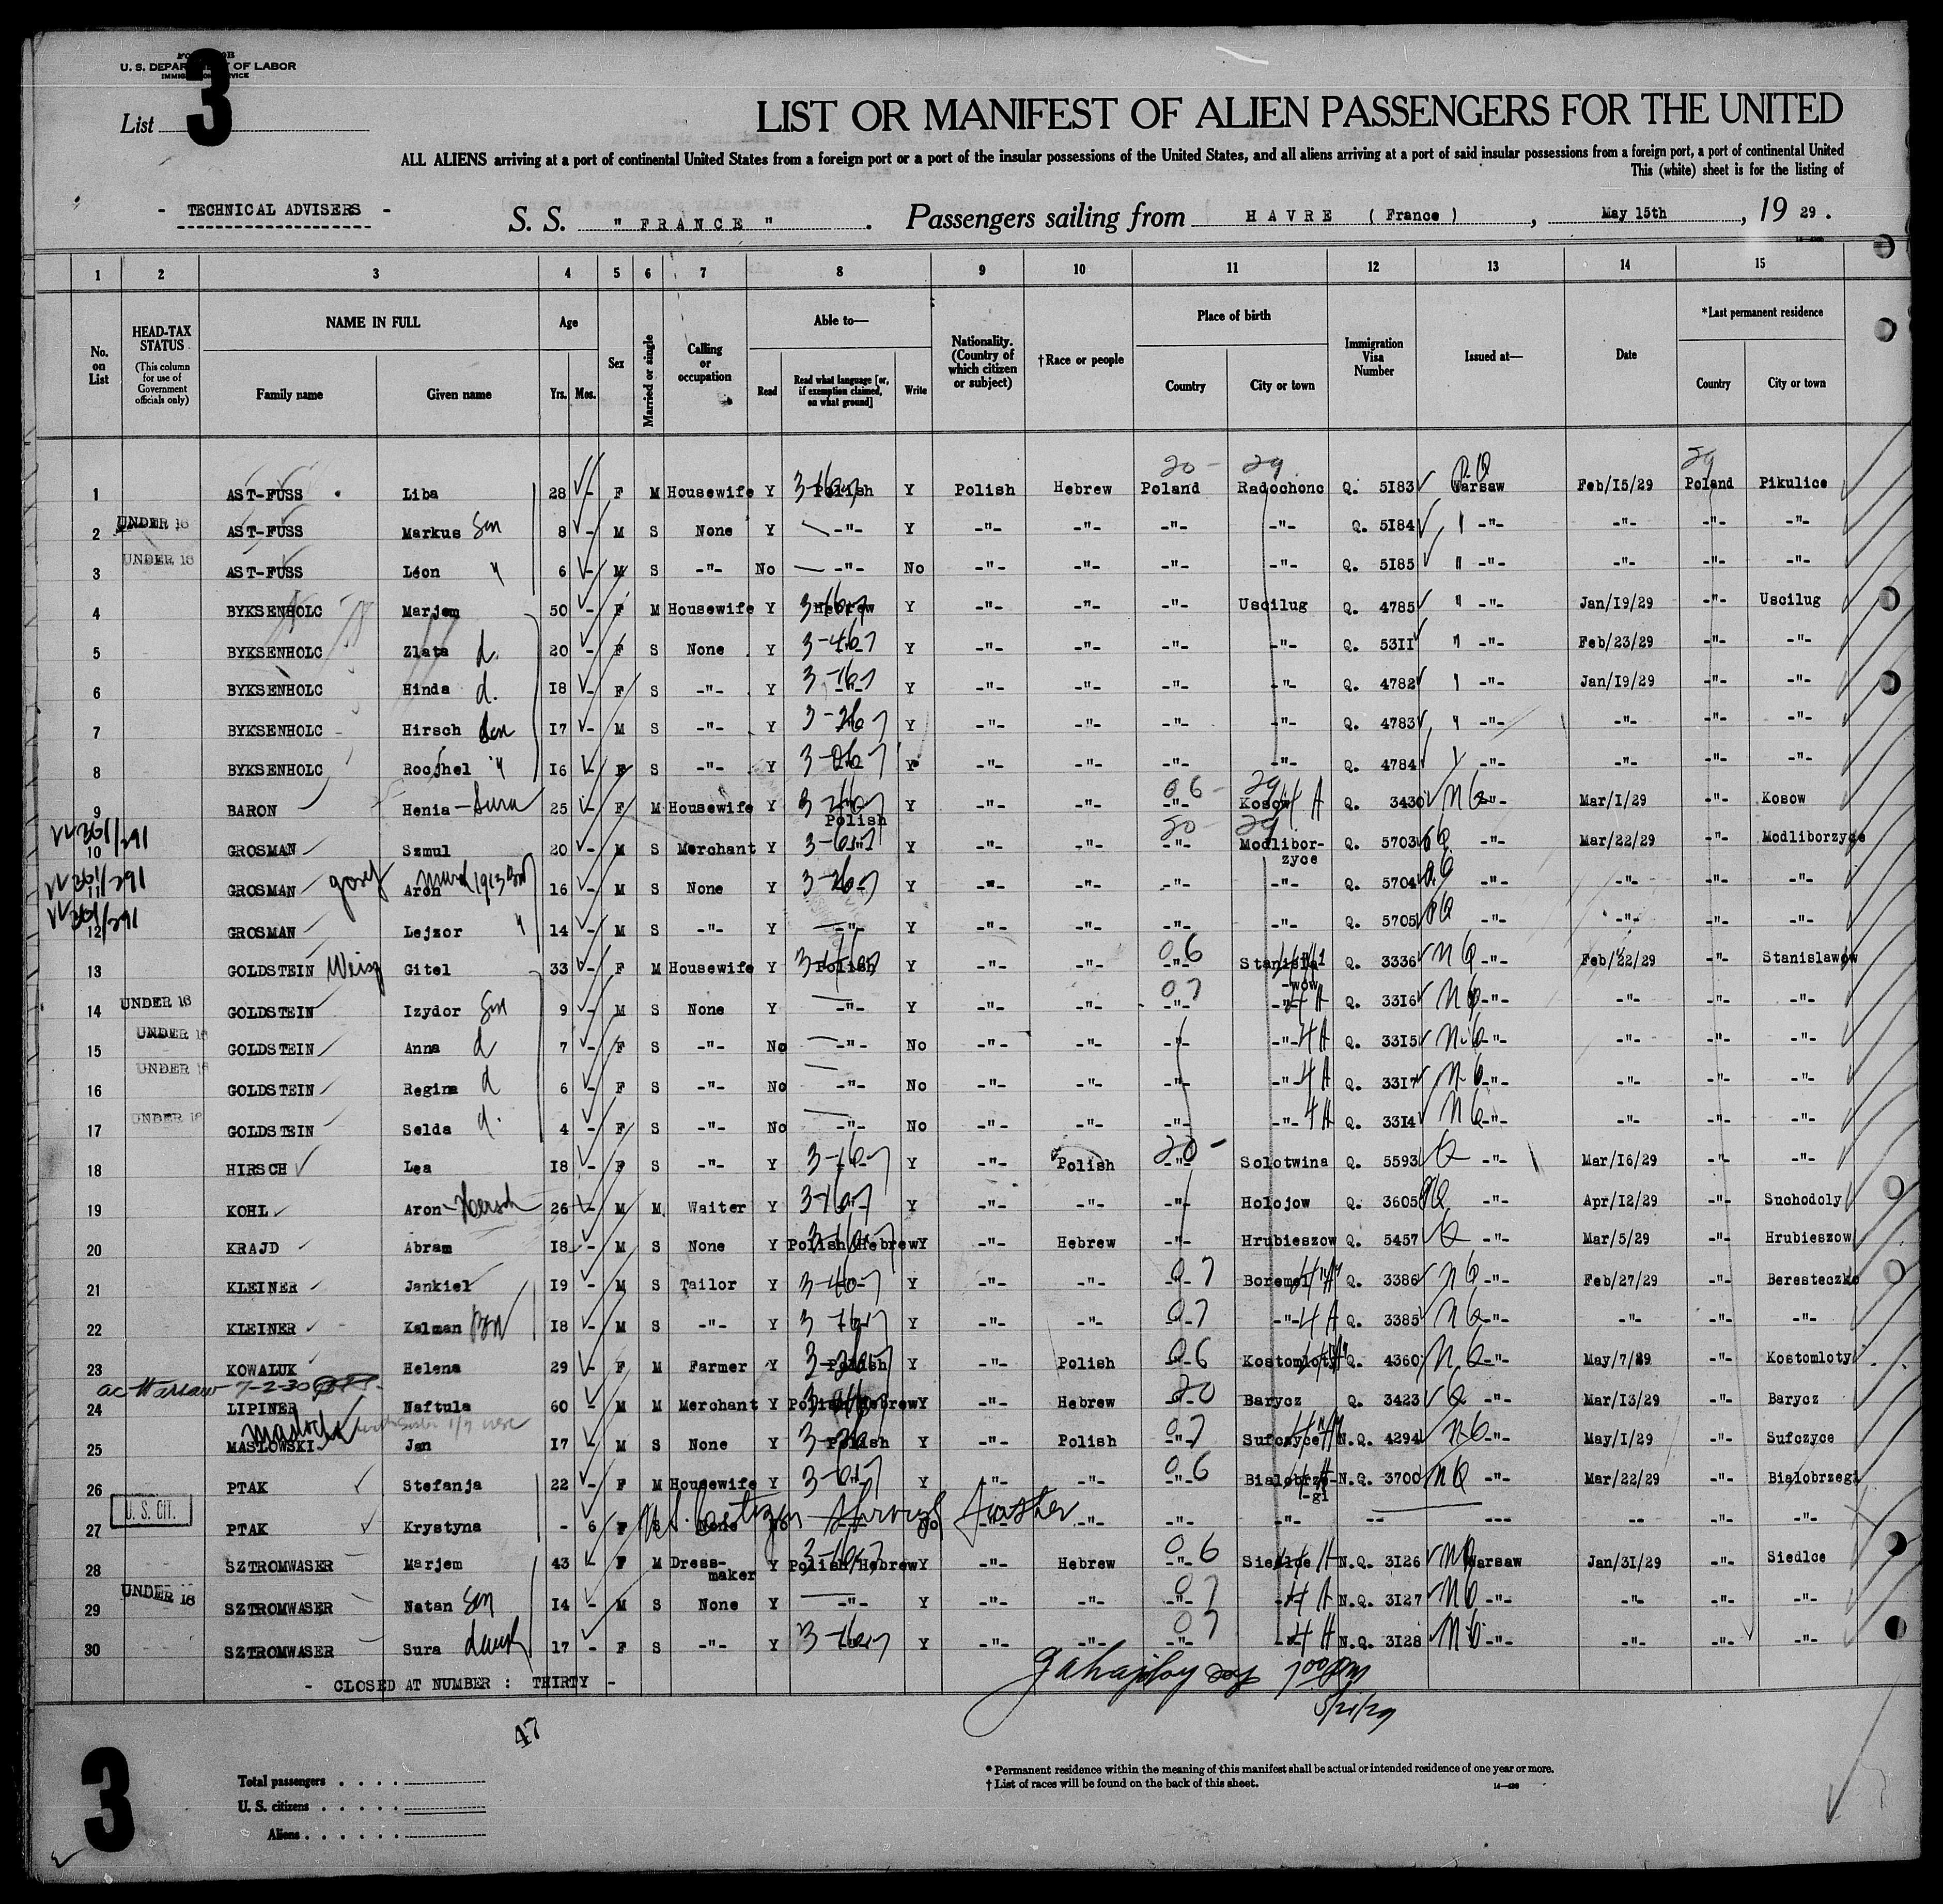 U. S. DEPARTMENT OF LABOR
IMMIGRATION SERVICE
List 3
LIST OR MANIFEST OF ALIEN PASSENGERS FOR THE UNITED
ALL ALIENS arriving at a port of continental United States from a foreign port or a port of the insular possessions of the United States, and all aliens arriving at a port of said insular possessions from a foreign port, a port of continental United
This (white) sheet is for the listing of
- TECHNICAL ADVISERS -
S. S. " FRANCE " . Passengers sailing from HAVRE ( France ) , May 15th , 19 29 .
1 2 3 4 5 6 7 8 9 10 11 12 13 14 15
No. on List
HEAD-TAX STATUS (This column for use of Government officials only)
NAME IN FULL Family name Given name
Age Yrs. Mos.
Sex
Married or single
Calling or occupation
Able to— Read Read what language [or, if exemption claimed, on what ground] Write
Nationality. (Country of which citizen or subject)
†Race or people
Place of birth Country City or town
Immigration Visa Number
Issued at—
Date
*Last permanent residence Country City or town
1 AST-FUSS Liba 28 - F M Housewife Y Polish Y Polish Hebrew Poland Radochonc Q. 5183 Warsaw Feb/15/29 Poland Pikulice
2 UNDER 16 AST-FUSS Markus Son 8 - M S None Y -"- Y -"- -"- -"- -"- Q. 5184 -"- -"- -"- -"-
3 UNDER 16 AST-FUSS Léon " 6 - M S -"- No -"- No -"- -"- -"- -"- Q. 5185 -"- -"- -"- -"-
4 BYKSENHOLC Marjem 50 - F M Housewife Y Hebrew Y -"- -"- -"- Uscilug Q. 4785 -"- Jan/19/29 -"- Uscilug
5 BYKSENHOLC Zlata d. 20 - F S None Y -"- Y -"- -"- -"- -"- Q. 5311 -"- Feb/23/29 -"- -"-
6 BYKSENHOLC Hinda d. 18 - F S -"- Y -"- Y -"- -"- -"- -"- Q. 4782 -"- Jan/19/29 -"- -"-
7 BYKSENHOLC Hirsch Son 17 - M S -"- Y -"- Y -"- -"- -"- -"- Q. 4783 -"- -"- -"- -"-
8 BYKSENHOLC Rochel " 16 - F S -"- Y -"- Y -"- -"- -"- -"- Q. 4784 -"- -"- -"- -"-
9 BARON Henia - Sura 25 - F M Housewife Y -"- Y -"- -"- -"- Kosow Q. 3430 -"- Mar/1/29 -"- Kosow
10 GROSMAN Szmul 20 - M S Merchant Y Polish Y -"- -"- -"- Modliborzyce Q. 5703 -"- Mar/22/29 -"- Modliborzyce
11 GROSMAN Aron 16 - M S None Y -"- Y -"- -"- -"- -"- Q. 5704 -"- -"- -"- -"-
12 GROSMAN Lejzor " 14 - M S -"- Y -"- Y -"- -"- -"- -"- Q. 5705 -"- -"- -"- -"-
13 GOLDSTEIN Gitel 33 - F M Housewife Y Polish Y -"- -"- -"- Stanislawow Q. 3336 -"- Feb/22/29 -"- Stanislawow
14 UNDER 16 GOLDSTEIN Izydor Son 9 - M S None Y -"- Y -"- -"- -"- -"- Q. 3316 -"- -"- -"- -"-
15 UNDER 16 GOLDSTEIN Anna d 7 - F S -"- No -"- No -"- -"- -"- -"- Q. 3315 -"- -"- -"- -"-
16 UNDER 16 GOLDSTEIN Regina d 6 - F S -"- No -"- No -"- -"- -"- -"- Q. 3317 -"- -"- -"- -"-
17 UNDER 16 GOLDSTEIN Selda d. 4 - F S -"- No -"- No -"- -"- -"- -"- Q. 3314 -"- -"- -"- -"-
18 HIRSCH Lea 18 - F S -"- Y -"- Y -"- Polish -"- Solotwina Q. 5593 -"- Mar/16/29 -"- -"-
19 KOHL Aron - Hersch 26 - M M Waiter Y -"- Y -"- -"- -"- Holojow Q. 3605 -"- Apr/12/29 -"- Suchodoly
20 KRAJD Abram 18 - M S None Y Polish/Hebrew Y -"- Hebrew -"- Hrubieszow Q. 5457 -"- Mar/5/29 -"- Hrubieszow
21 KLEINER Jankiel 19 - M S Tailor Y -"- Y -"- -"- -"- Boremel Q. 3386 -"- Feb/27/29 -"- Beresteczko
22 KLEINER Kalman 18 - M S -"- Y -"- Y -"- -"- -"- -"- Q. 3385 -"- -"- -"- -"-
23 KOWALUK Helena 29 - F M Farmer Y Polish Y -"- Polish -"- Kostomloty Q. 4360 -"- May/7/29 -"- Kostomloty
ac Warsaw 7-2-30
24 LIPINER Naftula 60 - M M Merchant Y Polish/Hebrew Y -"- Hebrew -"- Barycz Q. 3423 -"- Mar/13/29 -"- Barycz
25 MASLOWSKI Jan 17 - M S None Y Polish Y -"- Polish -"- Sufczyce N.Q. 4294 -"- May/1/29 -"- Sufczyce
26 PTAK Stefanja 22 - F M Housewife Y -"- Y -"- -"- -"- Bialobrzegi N.Q. 3700 -"- Mar/22/29 -"- Bialobrzegi
27 U. S. CIT. PTAK Krystyna - 6 F S None No -"- No -"- -"- -"- -"- -- --- -- -"- -"-
U.S. Citizen through father
28 SZTROMWASER Marjem 43 - F M Dressmaker Y Polish/Hebrew Y -"- Hebrew -"- Siedlce N.Q. 3126 Warsaw Jan/31/29 -"- Siedlce
29 UNDER 16 SZTROMWASER Natan Son 14 - M S None Y -"- Y -"- -"- -"- -"- N.Q. 3127 -"- -"- -"- -"-
30 SZTROMWASER Sura daugh 17 - F S -"- Y -"- Y -"- -"- -"- -"- N.Q. 3128 -"- -"- -"- -"-
- CLOSED AT NUMBER : THIRTY -
5/21/29
47
3
Total passengers . . . .
U. S. citizens . . . . .
Aliens . . . . . .
* Permanent residence within the meaning of this manifest shall be actual or intended residence of one year or more.
† List of races will be found on the back of this sheet.